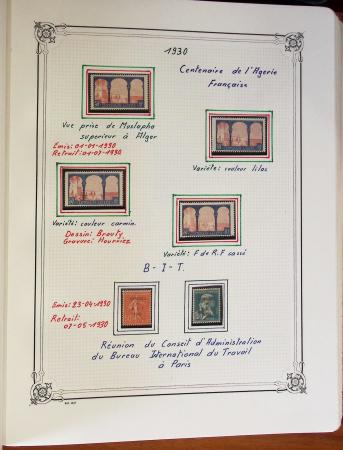 1930
Centenaire de l'Agerie
Française
Vue prise de Mustapha
superieur à Alger
Emis: 01-01-1930
Retrait: 01-07-1930
Variété: couleur lilas
Variété: couleur carmin.
Dessin: Brouty
Graveur: Mourniez
Variété: F de R.F cassé
B-I-T.
Emis: 23-04-1930
Retrait:
07-05-1930
Réunion du Conseil d'Administration
du Bureau International du Travail
à Paris